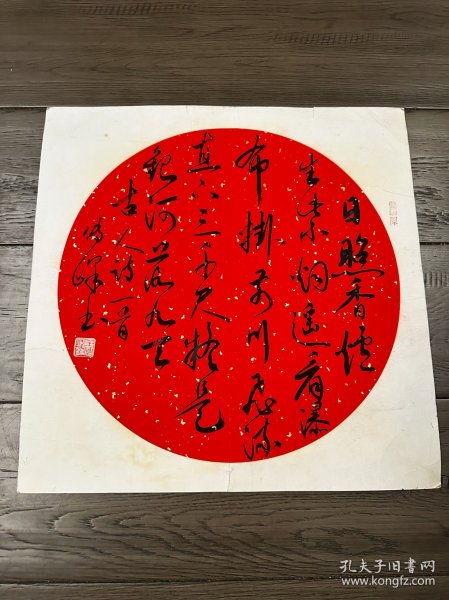 日照香炉
生紫烟遥看瀑
布掛前川飞流
直下三千尺疑是
银河落九天
古人诗一首
书
孔夫子旧书网
www.kongfz.com